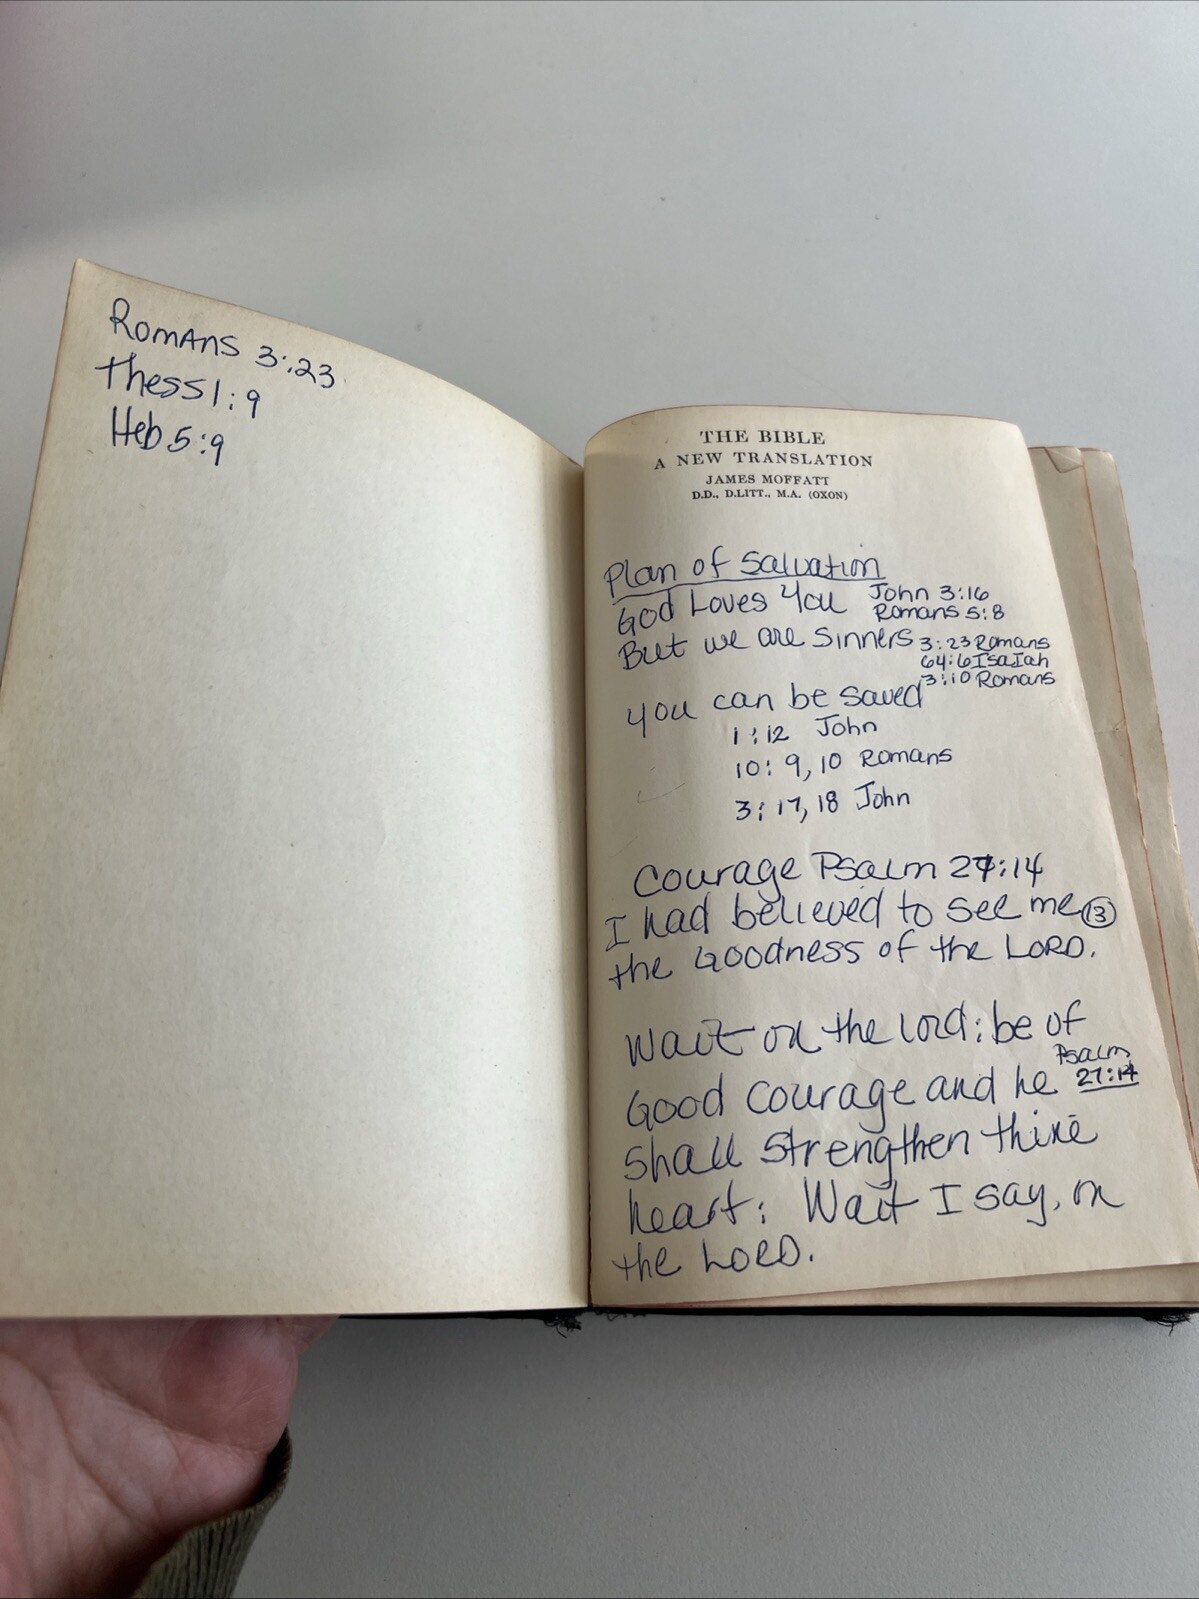 Romans 3:23
Thess 1:9
Heb 5:9
THE BIBLE
A NEW TRANSLATION
JAMES MOFFATT
D.D., D.LITT., M.A. (OXON)
Plan of Salvation
God Loves You John 3:16
Romans 5:8
But we are Sinners 3:23 Romans
64:6 Isaiah
3:10 Romans
you can be saved
1:12 John
10:9,10 Romans
3:17,18 John
Courage Psalm 27:14
I had believed to see me 13
the Goodness of the LORD.
Wait on the Lord: be of
Psalm
Good Courage and he 27:14
Shall Strengthen thine
heart: Wait I say, on
the LORD.